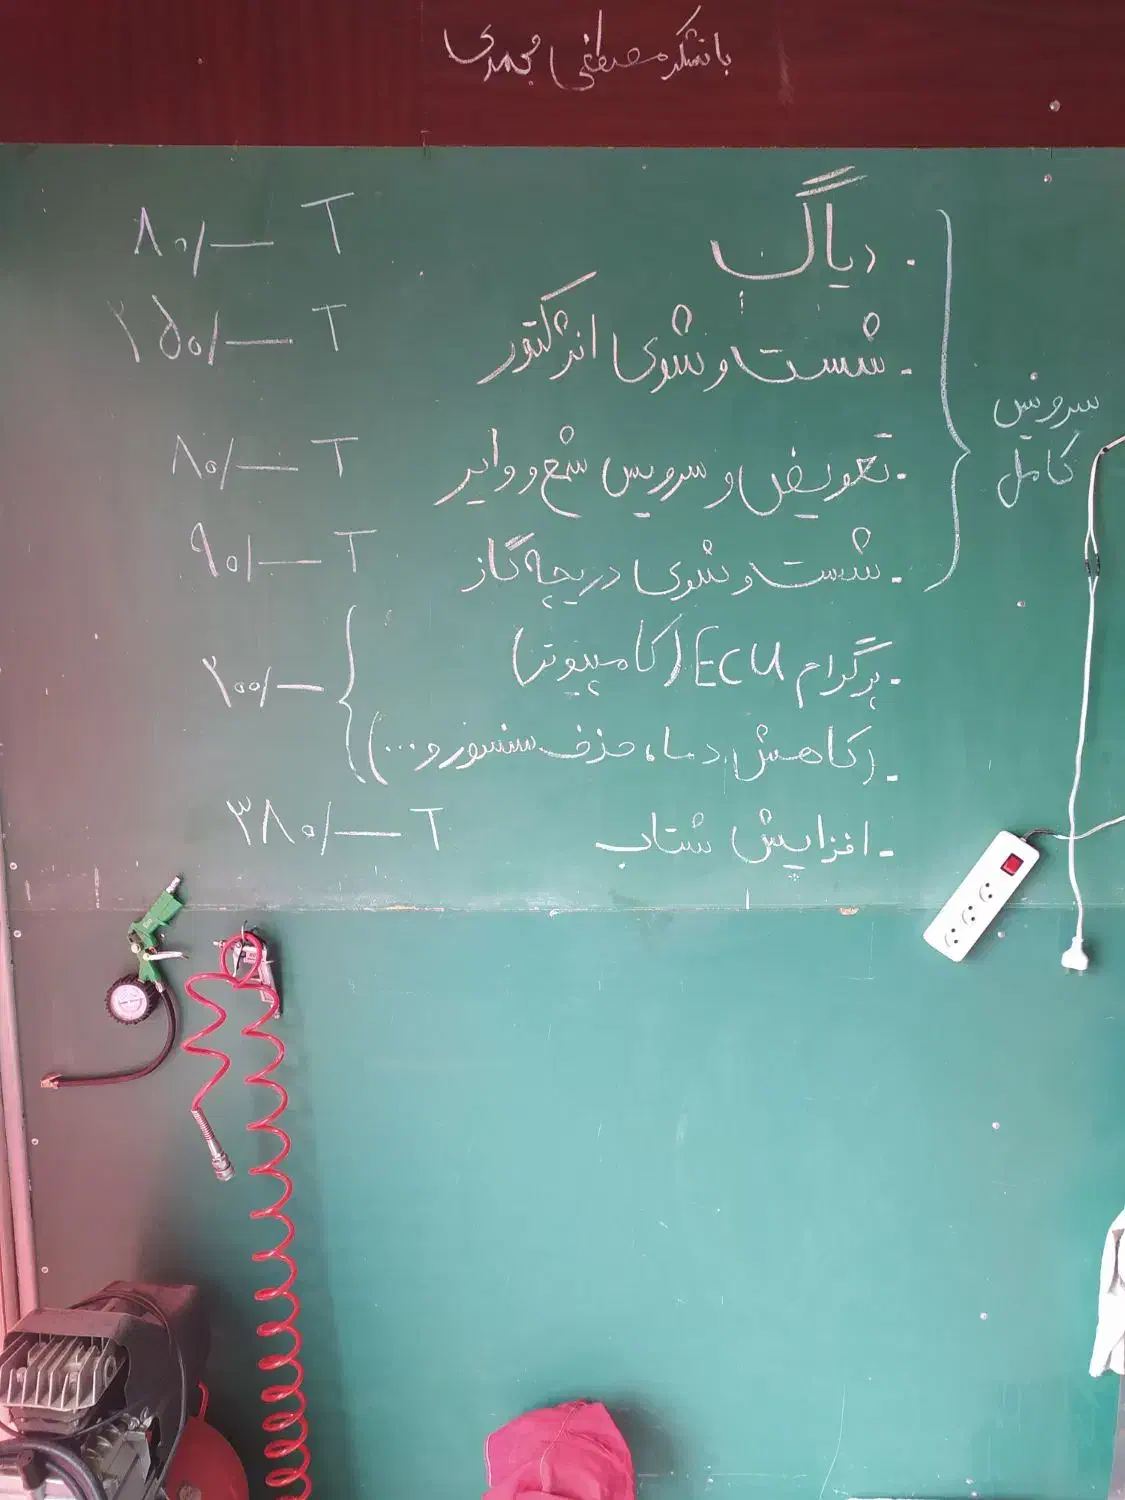 با تشکر مصطفی محمدی
سرویس کامل
- دیاگ ۸۰/— T
- شست و شوی انژکتور ۲۵۰/— T
- تعویض و سرویس شمع و وایر ۸۰/— T
- شست و شوی دریچه گاز ۹۰/— T
- پرگرام ECU (کامپیوتر) ۲۰۰/—
- (کاهش دما، حذف سنسور و...)
- افزایش شتاب ۳۸۰/— T